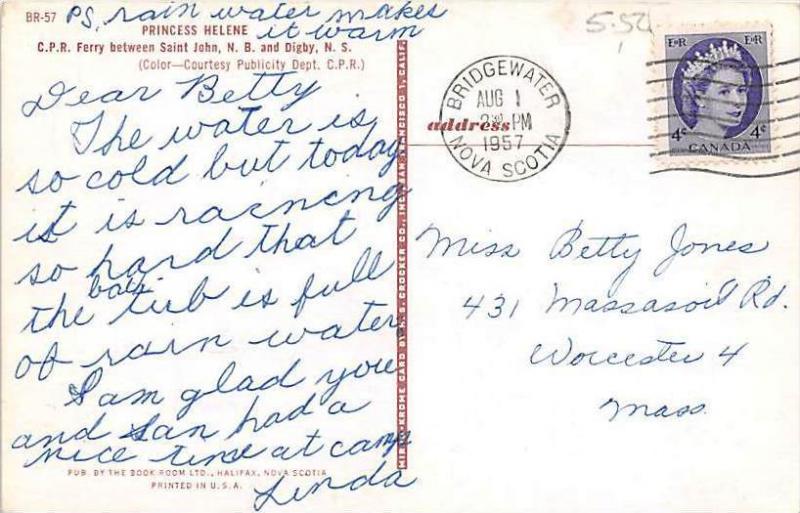 BR-57 PS. rain water makes
it warm
PRINCESS HELENE
C.P.R. Ferry between Saint John, N. B. and Digby, N. S.
(Color—Courtesy Publicity Dept. C.P.R.)
Dear Betty
The water is
so cold but today
it is raining
so hard that
the bath tub is full
of rain water
I am glad you
and Jan had a
nice time at camp
Linda
PUB. BY THE BOOK ROOM LTD., HALIFAX, NOVA SCOTIA
PRINTED IN U.S.A.
5-52
BRIDGEWATER
AUG 1
PM
1957
NOVA SCOTIA
address
E II R E II R
4¢ 4¢
CANADA
Miss Betty Jones
431 Massasoit Rd.
Worcester 4
Mass.